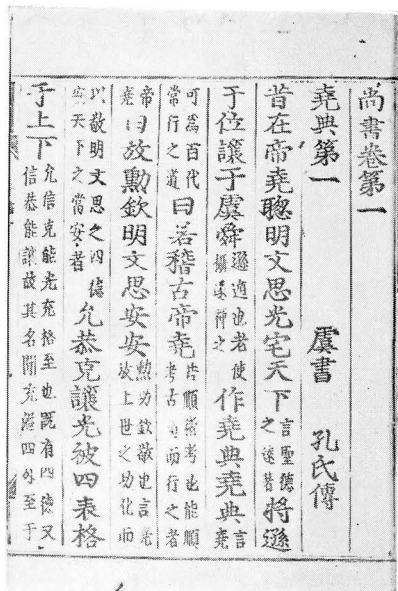 尚書卷第一
堯典第一　虞書　孔氏傳
昔在帝堯聰明文思光宅天下言聖德之遠著將遜
于位讓于虞舜遜遁也老使攝遂禪之作堯典堯典言堯
可為百代常行之道曰若稽古帝堯若順稽考也能順考古道而行之者
帝堯曰放勳欽明文思安安勳功欽敬也言堯放上世之功化而
以敬明文思之四德安天下之當安者允恭克讓光被四表格
于上下允信克能光充格至也既有四德又信恭能讓故其名聞充溢四外至于